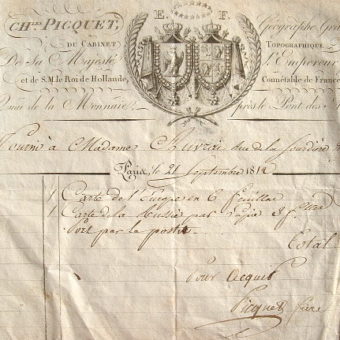 CH.les PICQUET, E. F. Géographe Gra
DU CABINET TOPOGRAPHIQUE
De Sa Majesté l'Empereur
et de S.M. le Roi de Hollande, Connétable de France
Quai de la Monnaie près le Pont des
Fourni à Madame rue de la
Paris, le 21 Septembre 1812
1 Carte de en 6 feuilles
1 Carte de la Russie par
Port par la poste
Total
Pour acquit
Picquet